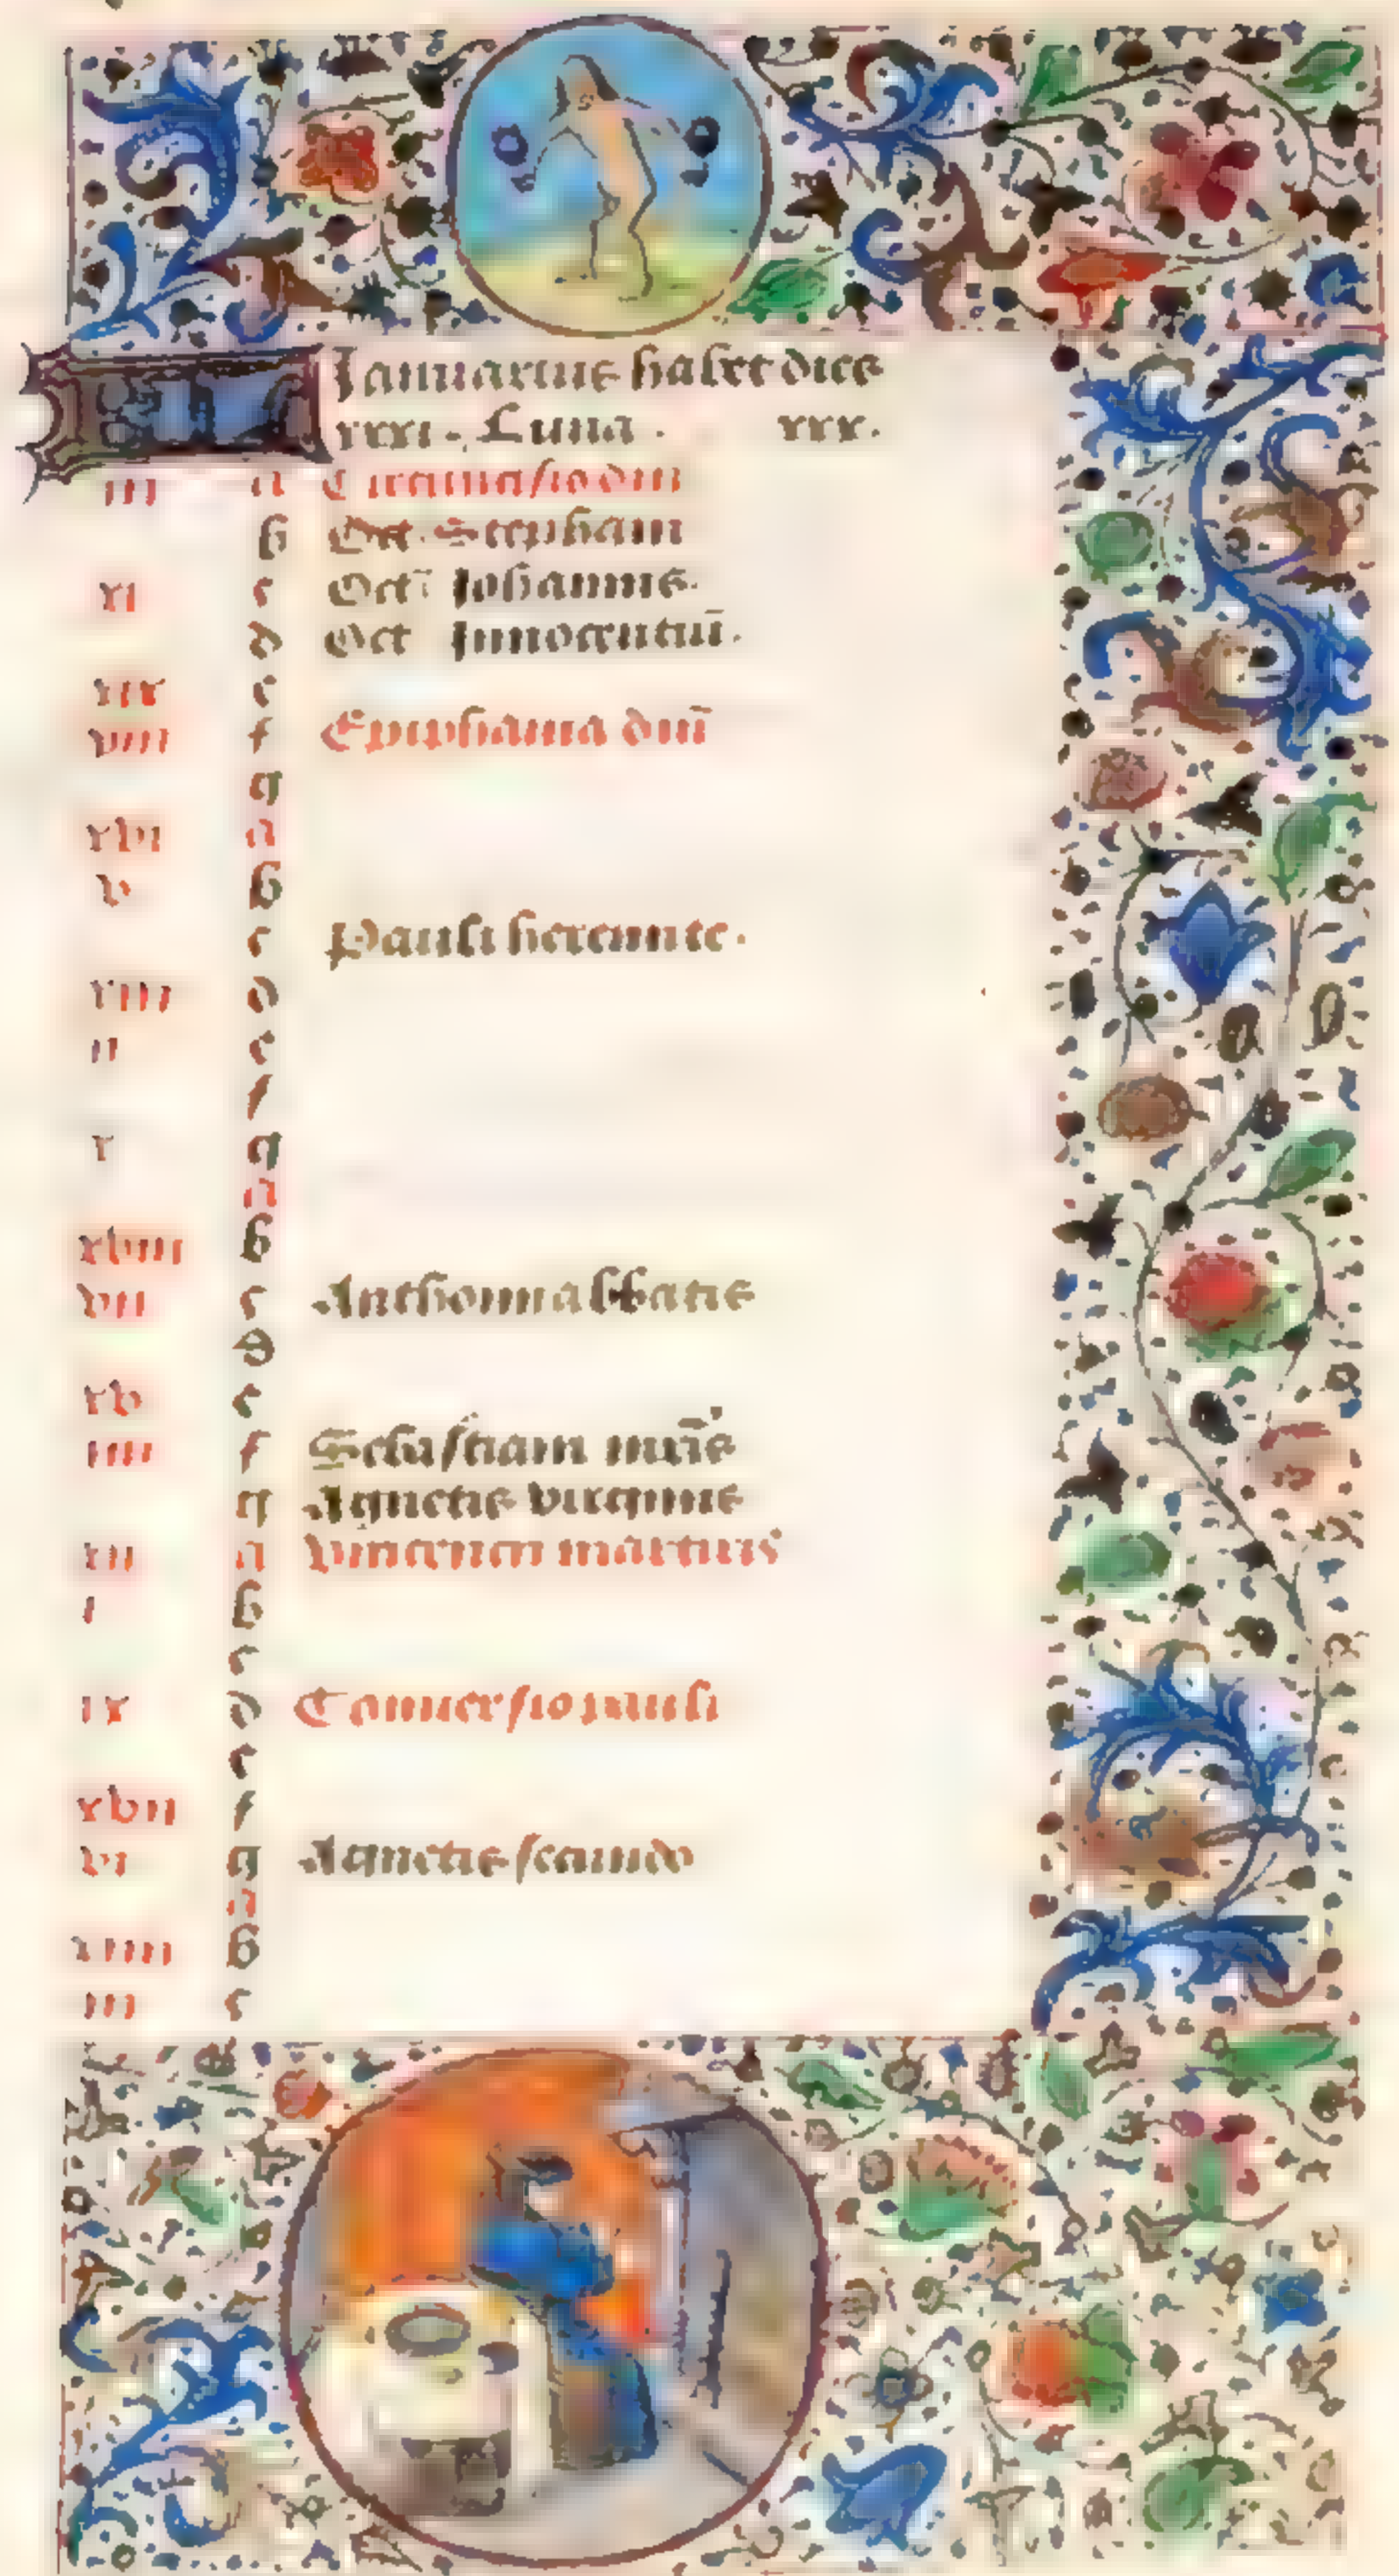 KL Januarius habet dies
xxxi. Luna. xxx.
iii a Circumcisio dm
b Oct. Stephani
xi c Oct Johannis.
d Oct Innocentiū.
xix e
viii f Epiphania dnī
g
xvi a
v b
c Pauli heremite.
xiii d
ii e
f
x g
a
xviii b
vii c Anthonii abbatis
d
xv e
iiii f Sebastiani mr̄is
g Agnetis virginis
xii a Vincencii martiris
i b
c
ix d Conuersio pauli
e
xvii f
vi g Agnetis secundo
a
xiiii b
iii c